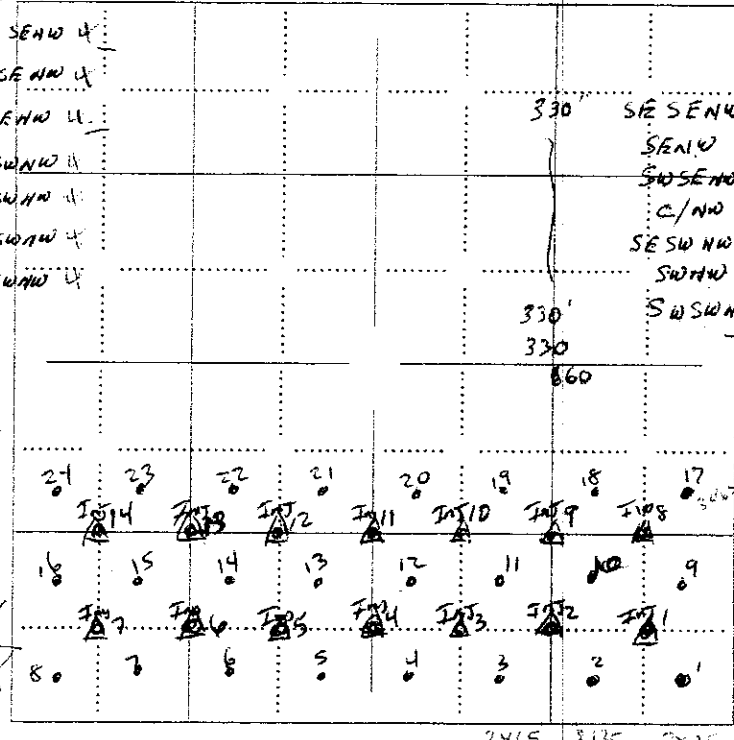 SENW 4
SE NW 4
ENW 4
SWNW 4
SW NW 4
SWNW 4
SWNW 4
330' SE SENW
SENW
SWSENW
C/NW
SE SW NW
SWNW
SWSWN
330'
330
660
24 23 22 21 20 19 18 17
Inj 14 Inj 13 Inj 12 Inj 11 Inj 10 Inj 9 Inj 8
16 15 14 13 12 11 10 9
Inj 7 Inj 6 Inj 5 Inj 4 Inj 3 Inj 2 Inj 1
8 7 6 5 4 3 2 1